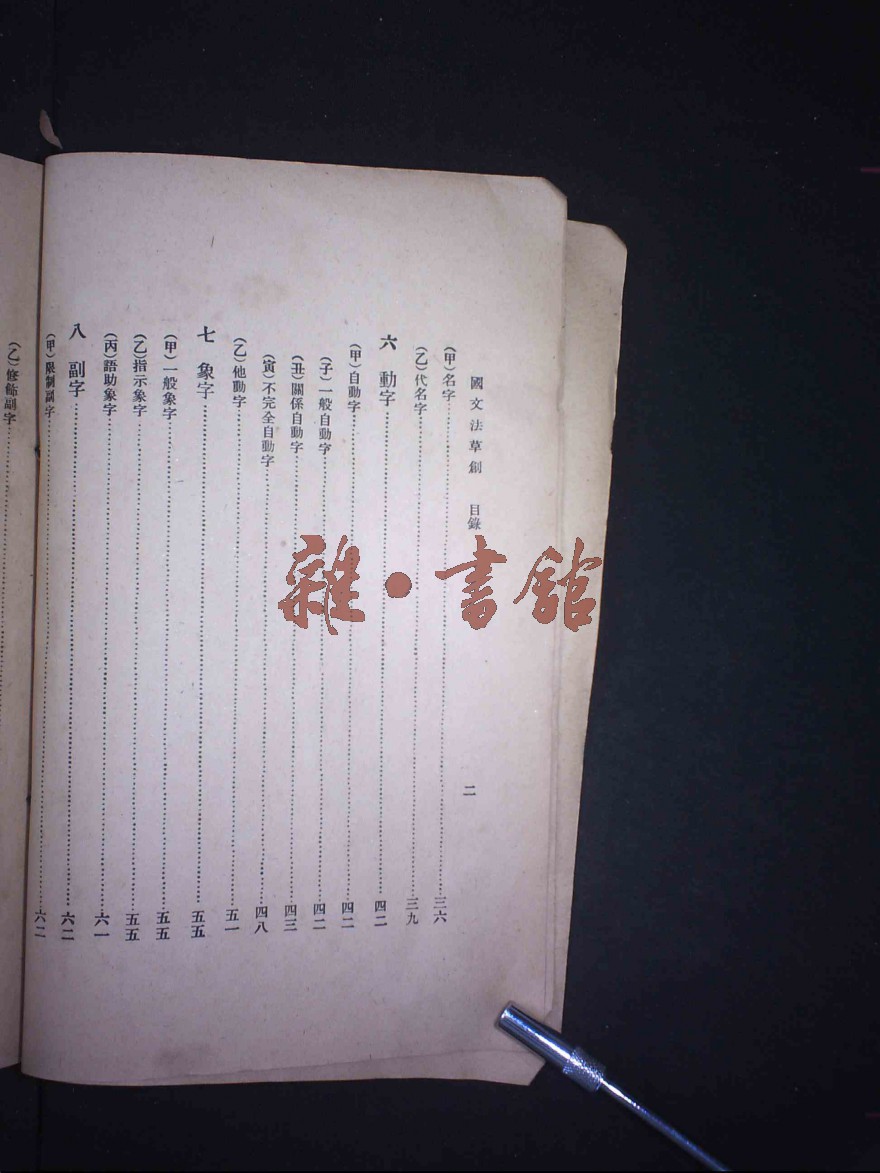 國文法草創 目錄 二
(甲)名字 三六
(乙)代名字 三九
六 動字 四二
(甲)自動字 四二
(子)一般自動字 四二
(丑)關係自動字 四三
(寅)不完全自動字 四八
(乙)他動字 五一
七 象字 五五
(甲)一般象字 五五
(乙)指示象字 五五
(丙)語助象字 六一
八 副字 六二
(甲)限制副字 六二
(乙)修飾副字
雜·書館